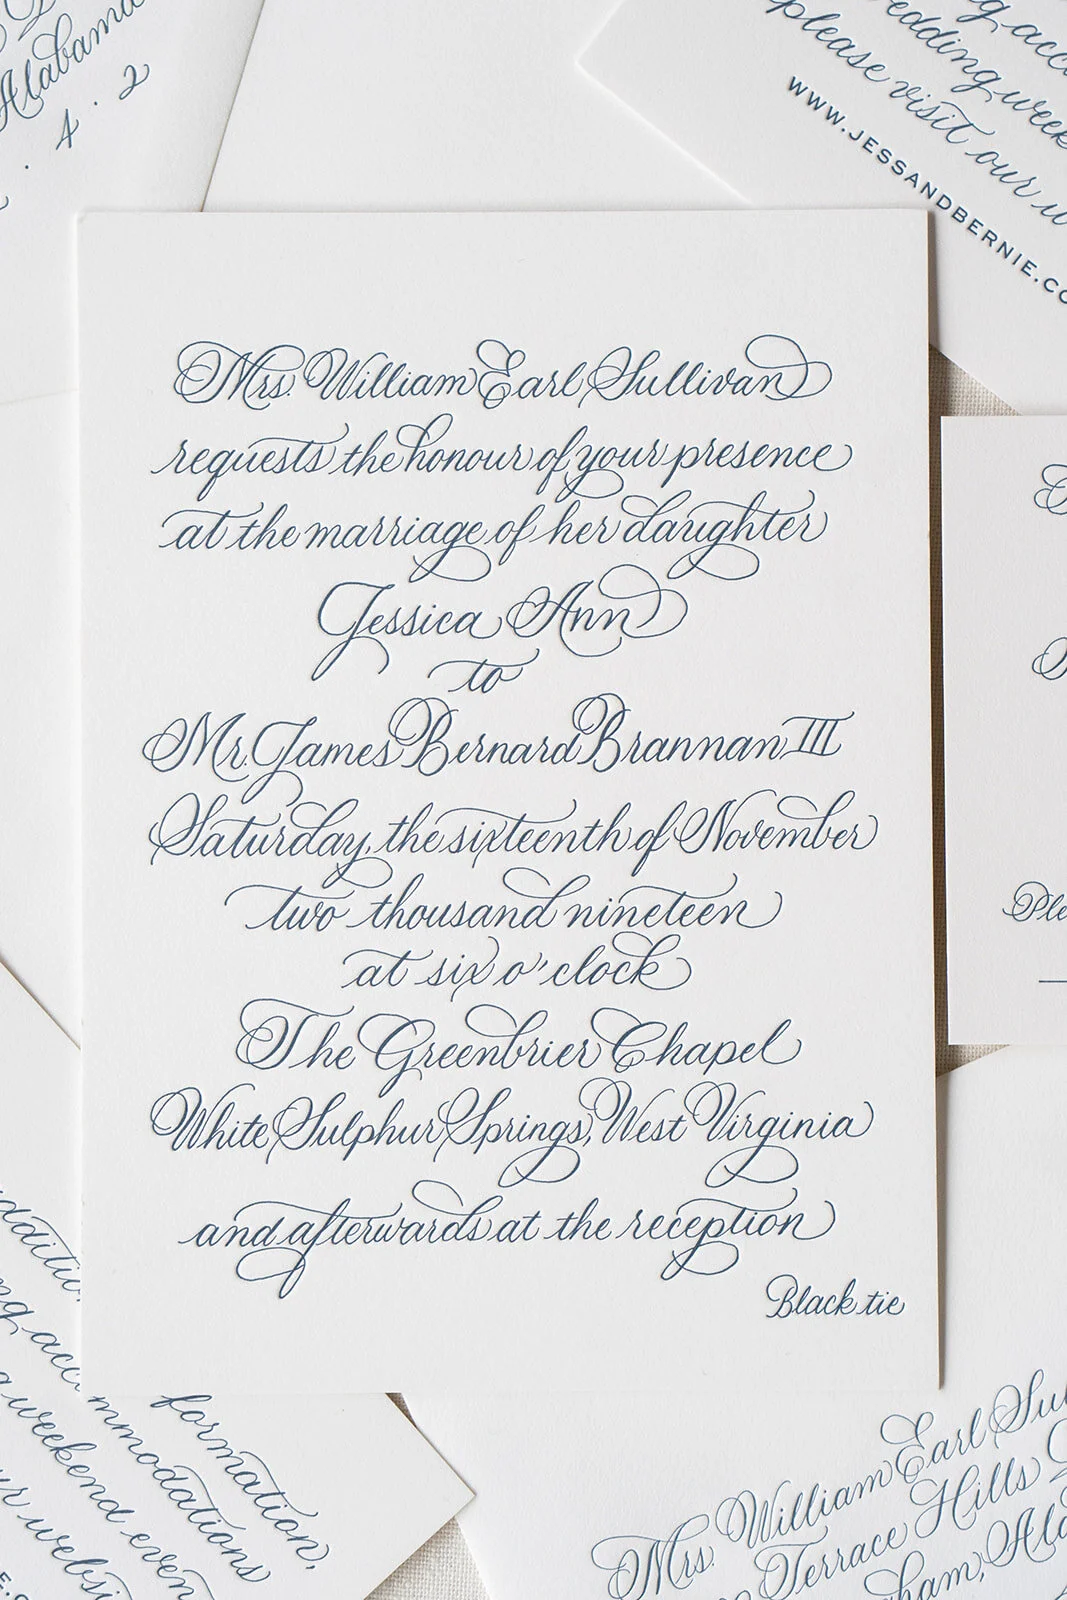 Alabama
4 . 2
please visit our
WWW.JESSANDBERNIE.CO
Mrs. William Earl Sullivan
requests the honour of your presence
at the marriage of her daughter
Jessica Ann
to
Mr. James Bernard Brannan III
Saturday, the sixteenth of November
two thousand nineteen
at six o'clock
The Greenbrier Chapel
White Sulphur Springs, West Virginia
and afterwards at the reception
Black tie
formation,
mmodations
weekend even
Mrs. William Earl Su
Terrace Hills